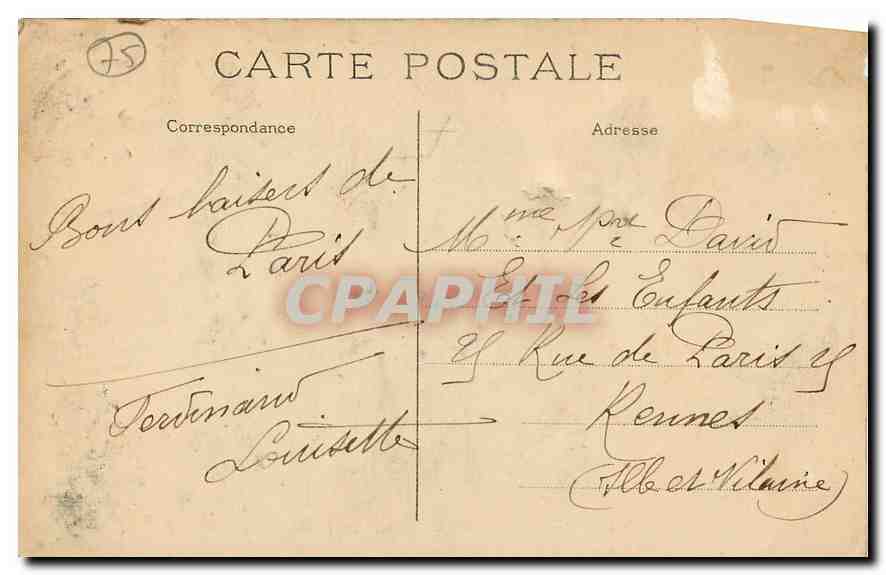 75
CARTE POSTALE
Correspondance
Bons baisers de
Paris
Ferdinand
Louisette
Adresse
Mme David
Et Les Enfants
25 Rue de Paris 25
Rennes
(Ille et Vilaine)
CPAPHIL